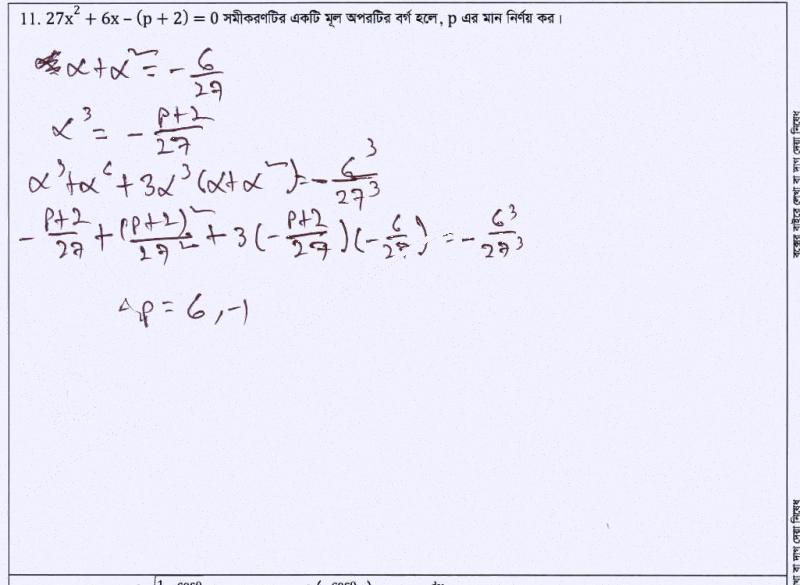 11. 27x² + 6x − (p + 2) = 0 সমীকরণটির একটি মূল অপরটির বর্গ হলে, p এর মান নির্ণয় কর।
α + α² = − 6/27
α³ = − p+2/27
α³ + α⁶ + 3α³(α + α²) = − 6³/27³
− p+2/27 + (p+2)²/27² + 3(− p+2/27)(− 6/27) = − 6³/27³
∴ p = 6, −1
বক্সের বাইরে লেখা বা দাগ দেয়া নিষেধ
বা দাগ দেয়া নিষেধ